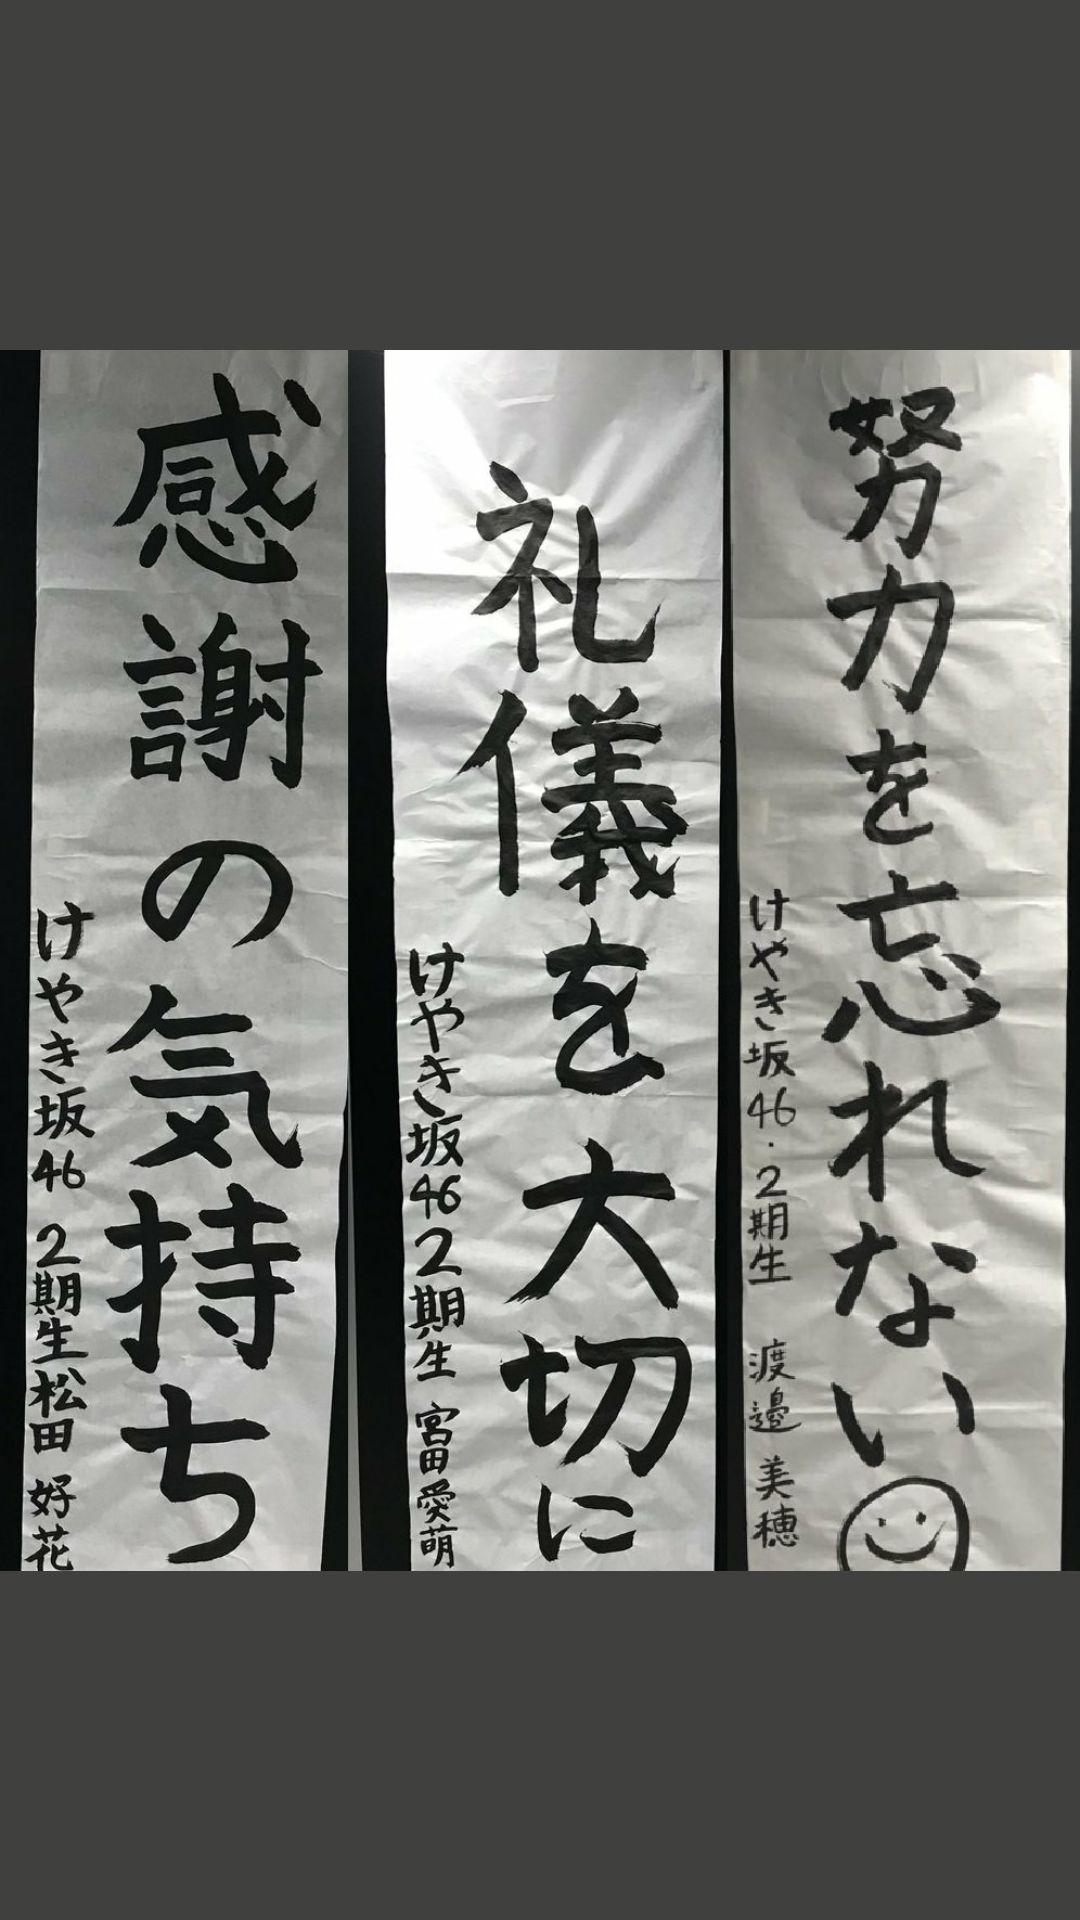 努力を忘れない
けやき坂46・2期生 渡邉 美穂
礼儀を大切に
けやき坂46 2期生 宮田愛萌
感謝の気持ち
けやき坂46 2期生 松田 好花